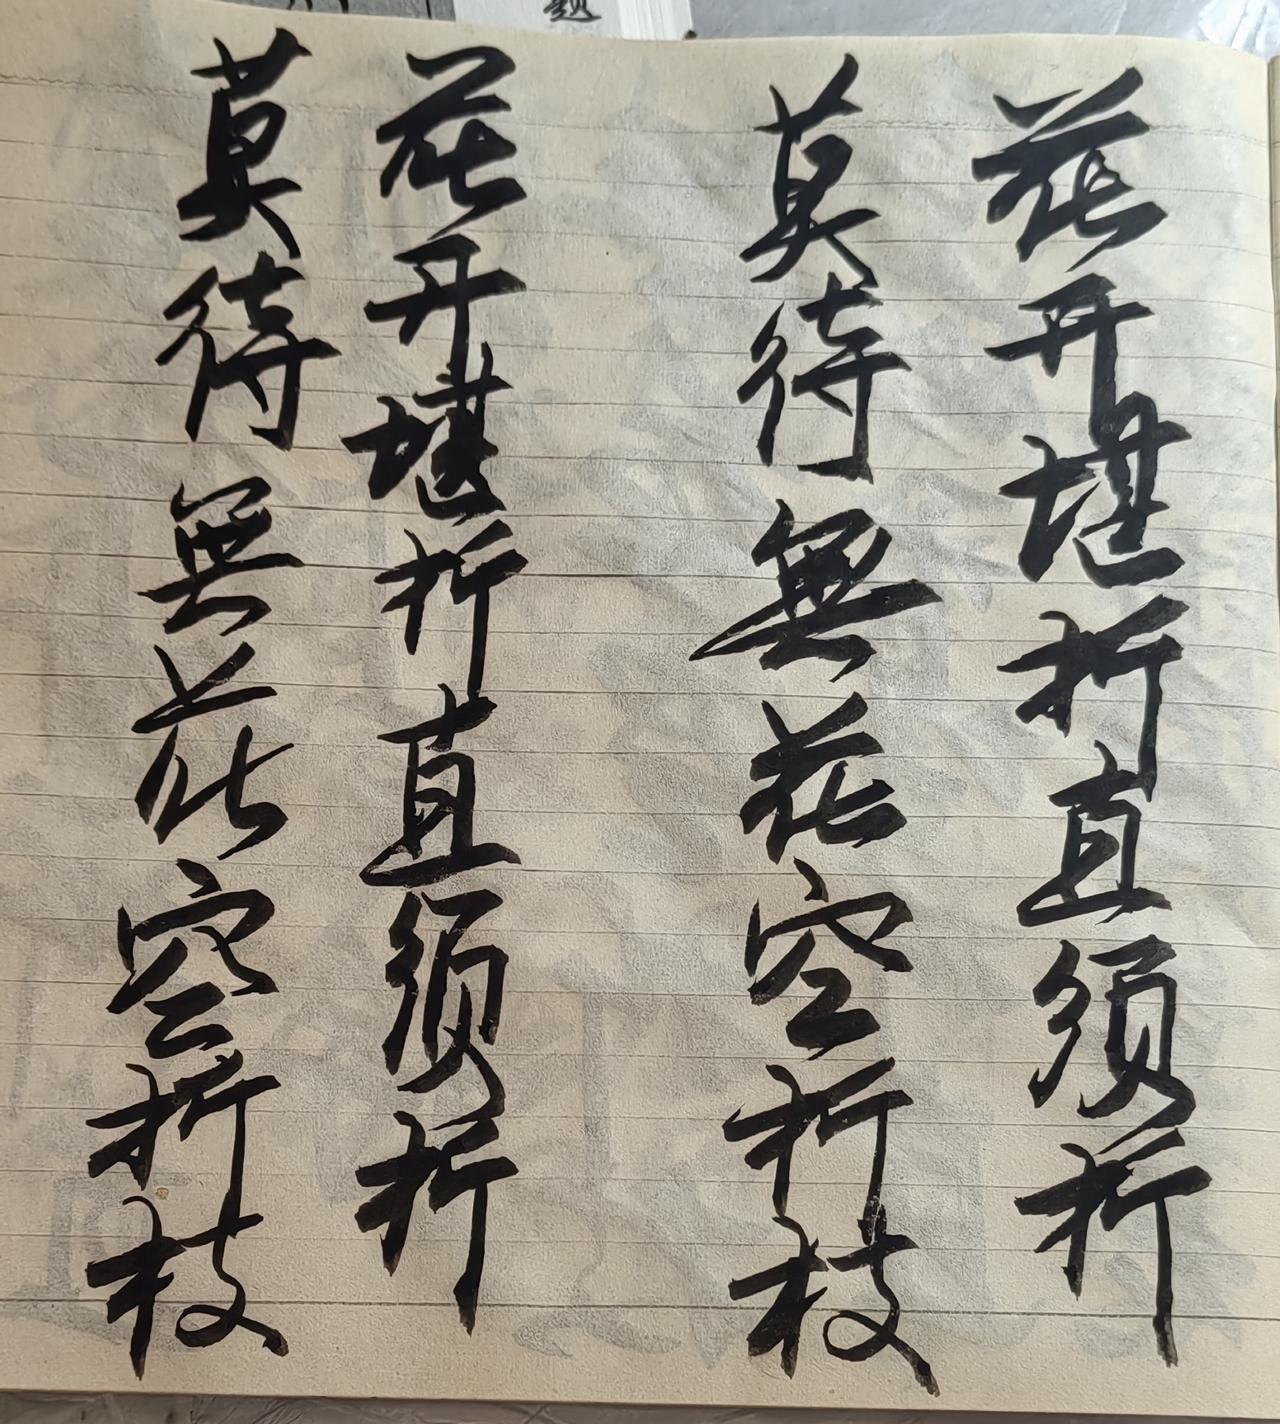 花开堪折直须折
莫待無花空折枝
花开堪折直须折
莫待無花空折枝
题